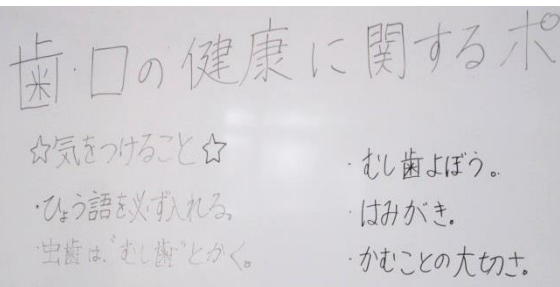 歯・口の健康に関するポ
☆気をつけること☆
・ひょう語を必ず入れる。
・虫歯は、"むし歯"とかく。
・むし歯よぼう。
・はみがき。
・かむことの大切さ。